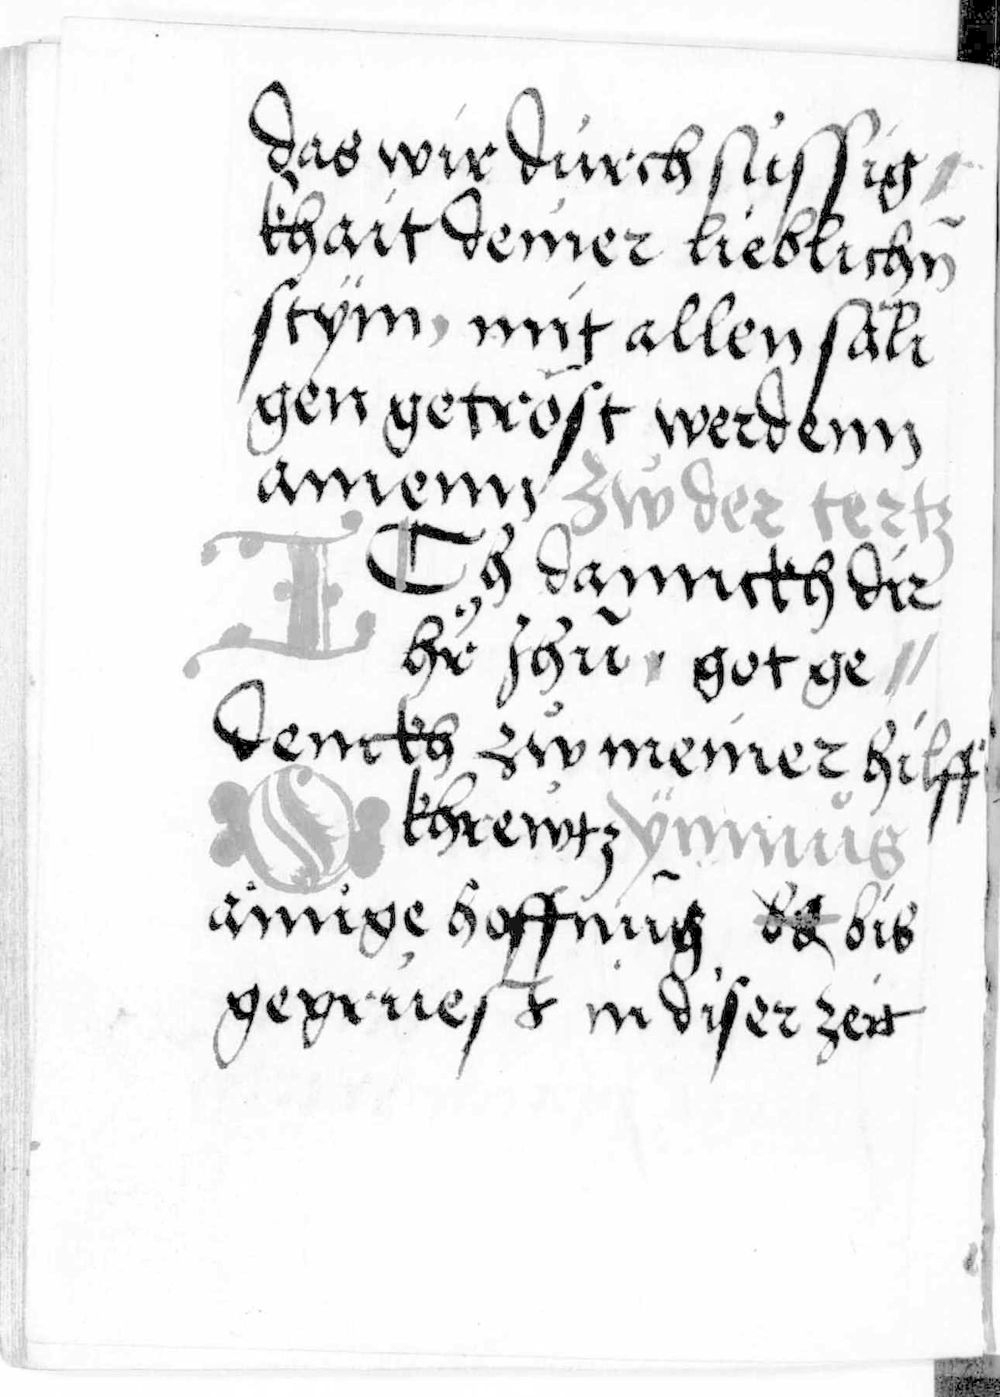 das wir durch sŭssig //
khait deiner lieblichn̄
stÿm, mit allen säli
gen getröst werdenn
amenn Zŵ der tertz
ICh dannckh dir
hr̈ Jhū, got ge //
denckh zŵ meiner hilff
O khrewtz ÿmnŭs
äinige hoffnūg bis
gegrŭest in diser zeit